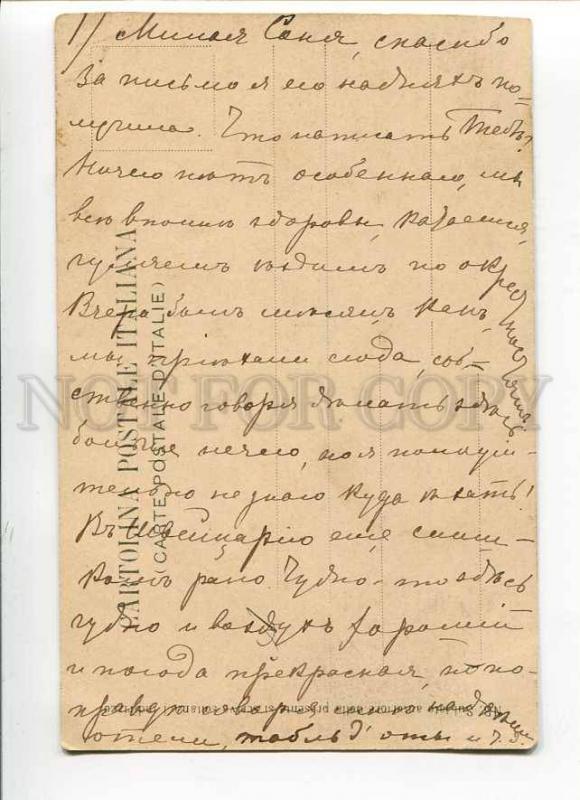 1/ Милая Соня, спасибо
за письмо я его надняхъ по-
лучила. Что написать Тебѣ?
Ничего нѣтъ особеннаго, мы
всѣ вполнѣ здоровы, катаемся,
гуляемъ ѣздимъ по окрестностямъ.
Вчера былъ мѣсяцъ какъ
мы пріѣхали сюда, соб-
ственно говоря дѣлать здѣсь
больше нечего, но я положи-
тельно не знаю куда ѣхать!
Въ Швейцарію еще слиш-
комъ рано. Чудно-то здѣсь
чудно и воздухъ хорошій
и погода прекрасная, но по
правдѣ говоря надоѣли
отели, табльд'оты и т.д.
CARTOLINA POSTALE ITALIANA
(CARTE POSTALE D'ITALIE)
NOT FOR COPY